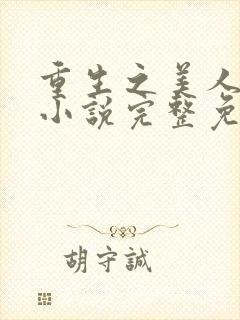 重生之美人
小说完整免
胡守誠